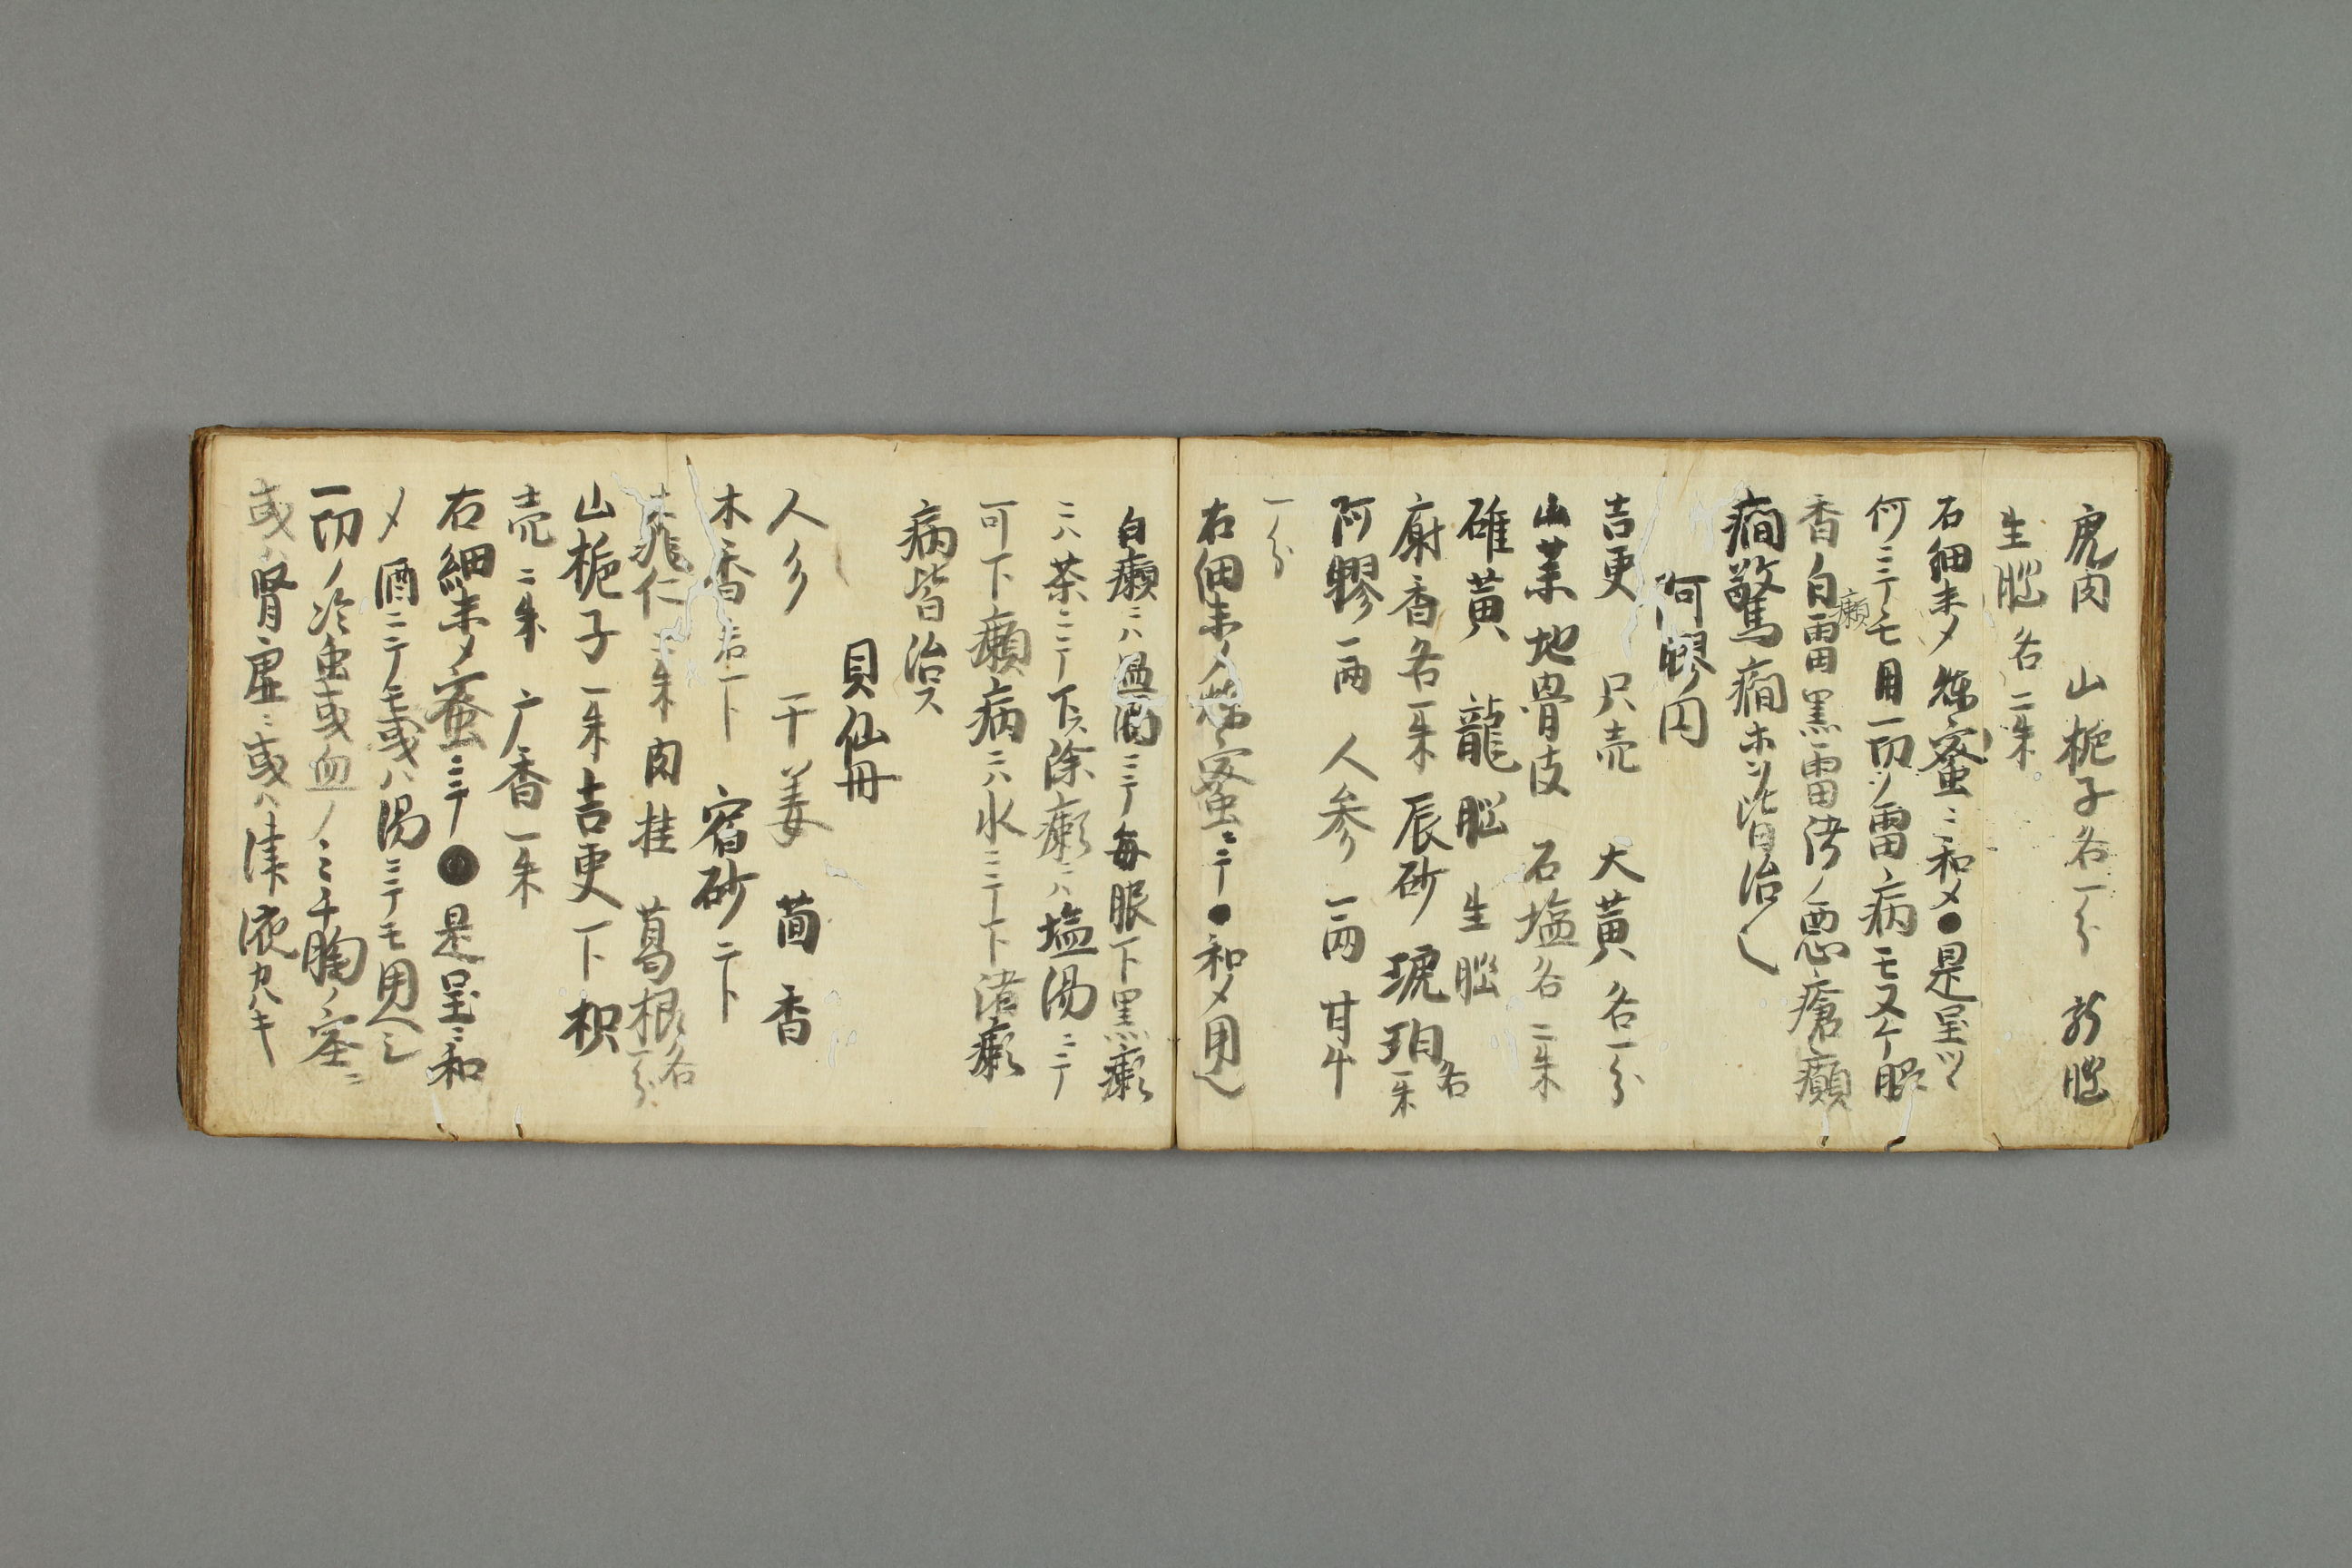 虎肉　山梔子各一分　龍脳
生脳各二朱
右細末メ煉蜜ニ和メ●是呈ツ
何ニテモ用一切ツ雷病モ又ケ
香白雷黒雷　ノ悪瘡癩
癩
癇驚癇ホツ皆治ヘ
阿膠円
吉更　只売　大黄各一分
山茱　地骨皮　石塩各二朱
雄黄　龍脳　生脳
麝香各一朱　辰砂　琥珀各一朱
阿膠一両　人参一両　甘草
一分
右細末メ煉蜜ニテ●和メ用ヘ
白癩ニハ温酒ニテ毎服下黒癩
ニハ茶ニテ下ス除癩ニハ塩湯ニテ
可下癩病ニハ水ニテ下諸癩
病皆治ス
貝仙丹
人参　干姜　茴香
木香　宿砂二下
桃仁二朱　肉桂　葛根各一分
山梔子一朱　吉更一下　枳
売二朱　广香一朱
右細末メ蜜ニテ●是呈ニ和
メ酒ニテモ或ハ湯ニテモ用ヘシ
一切ノ冷虫或血ノミチ胸ノ塞ニ
或ハ腎虚ニ或ハ津液カハキ